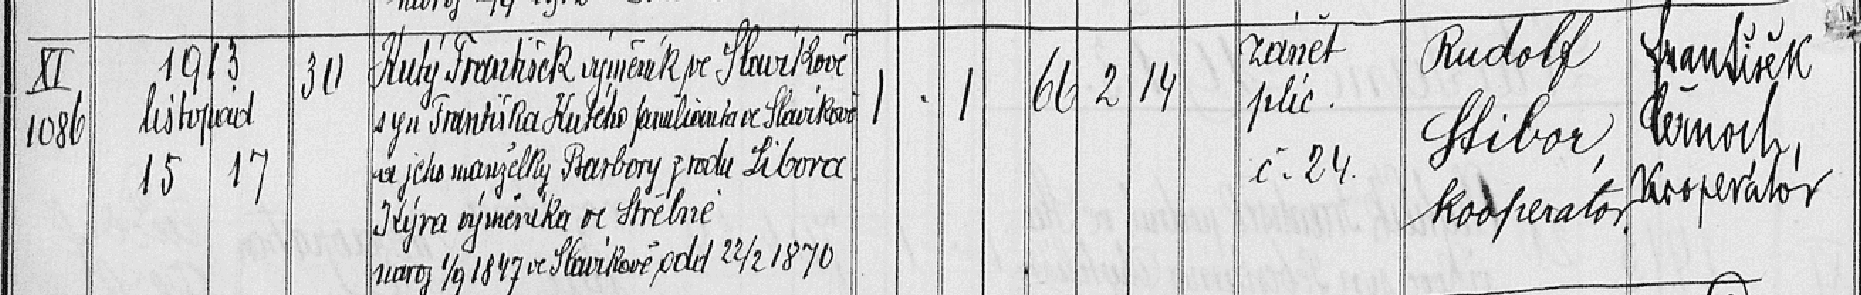 XI 1913 30 Kutý František výměník ve Slavíkově 1 . 1 66 2 14 zánět Rudolf František
1086 listopad syn Františka Kutého familianta ve Slavíkově plic. Stibor, Černoch,
15 17 a jeho manželky Barbory z rodu Libora č. 24. kooperátor. Kooperátor
Kýra výměníka ve Střelné
naroz 1/9 1847 ve Slavíkově odd 22/2 1870